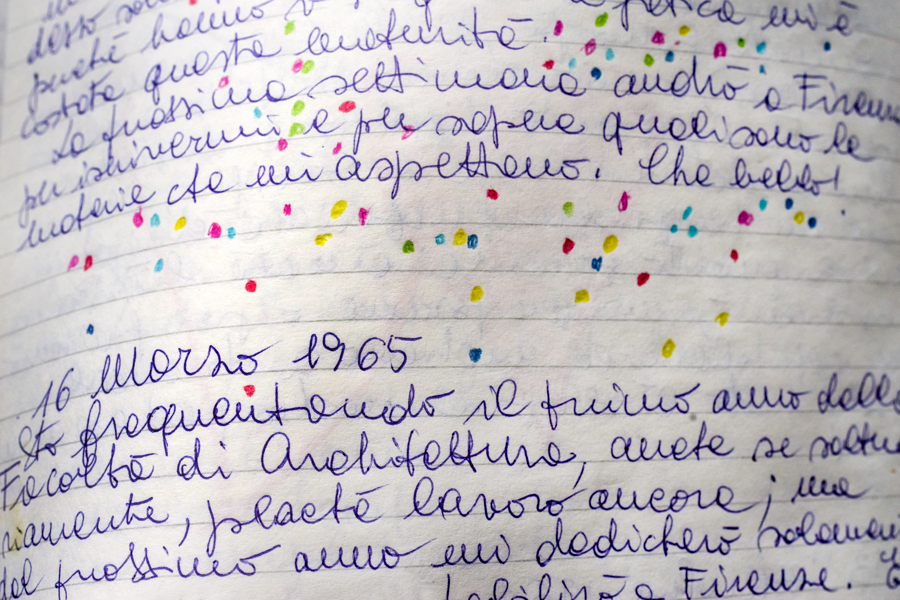 perché hanno
costata questa maturità.
La prossima settimana andrò a Firenze
per iscrivermi e per sapere quali sono le
materie che mi aspettano. Che bello!
16 Marzo 1965
Sto frequentando il primo anno della
Facoltà di Architettura, anche se saltua
riamente, perché lavoro ancora; ma
dal prossimo anno mi dedicherò solamen
a Firenze.